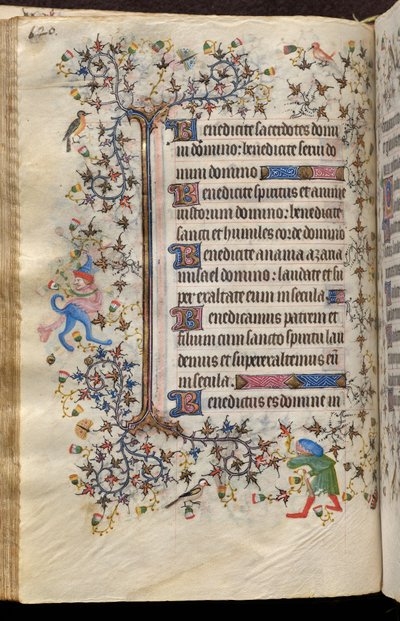 620.
Benedicite sacerdotes domi
ni domino: benedicite servi do
mini domino
Benedicite spiritus et anime
iustorum domino: benedicite
sancti et humiles corde domino
Benedicite anania azaria
misael domino: laudate et su
per exaltate eum in secula.
Benedicamus patrem et
filium cum sancto spiritu lau
demus et superexaltemus eū
in secula.
Benedictus es domine in